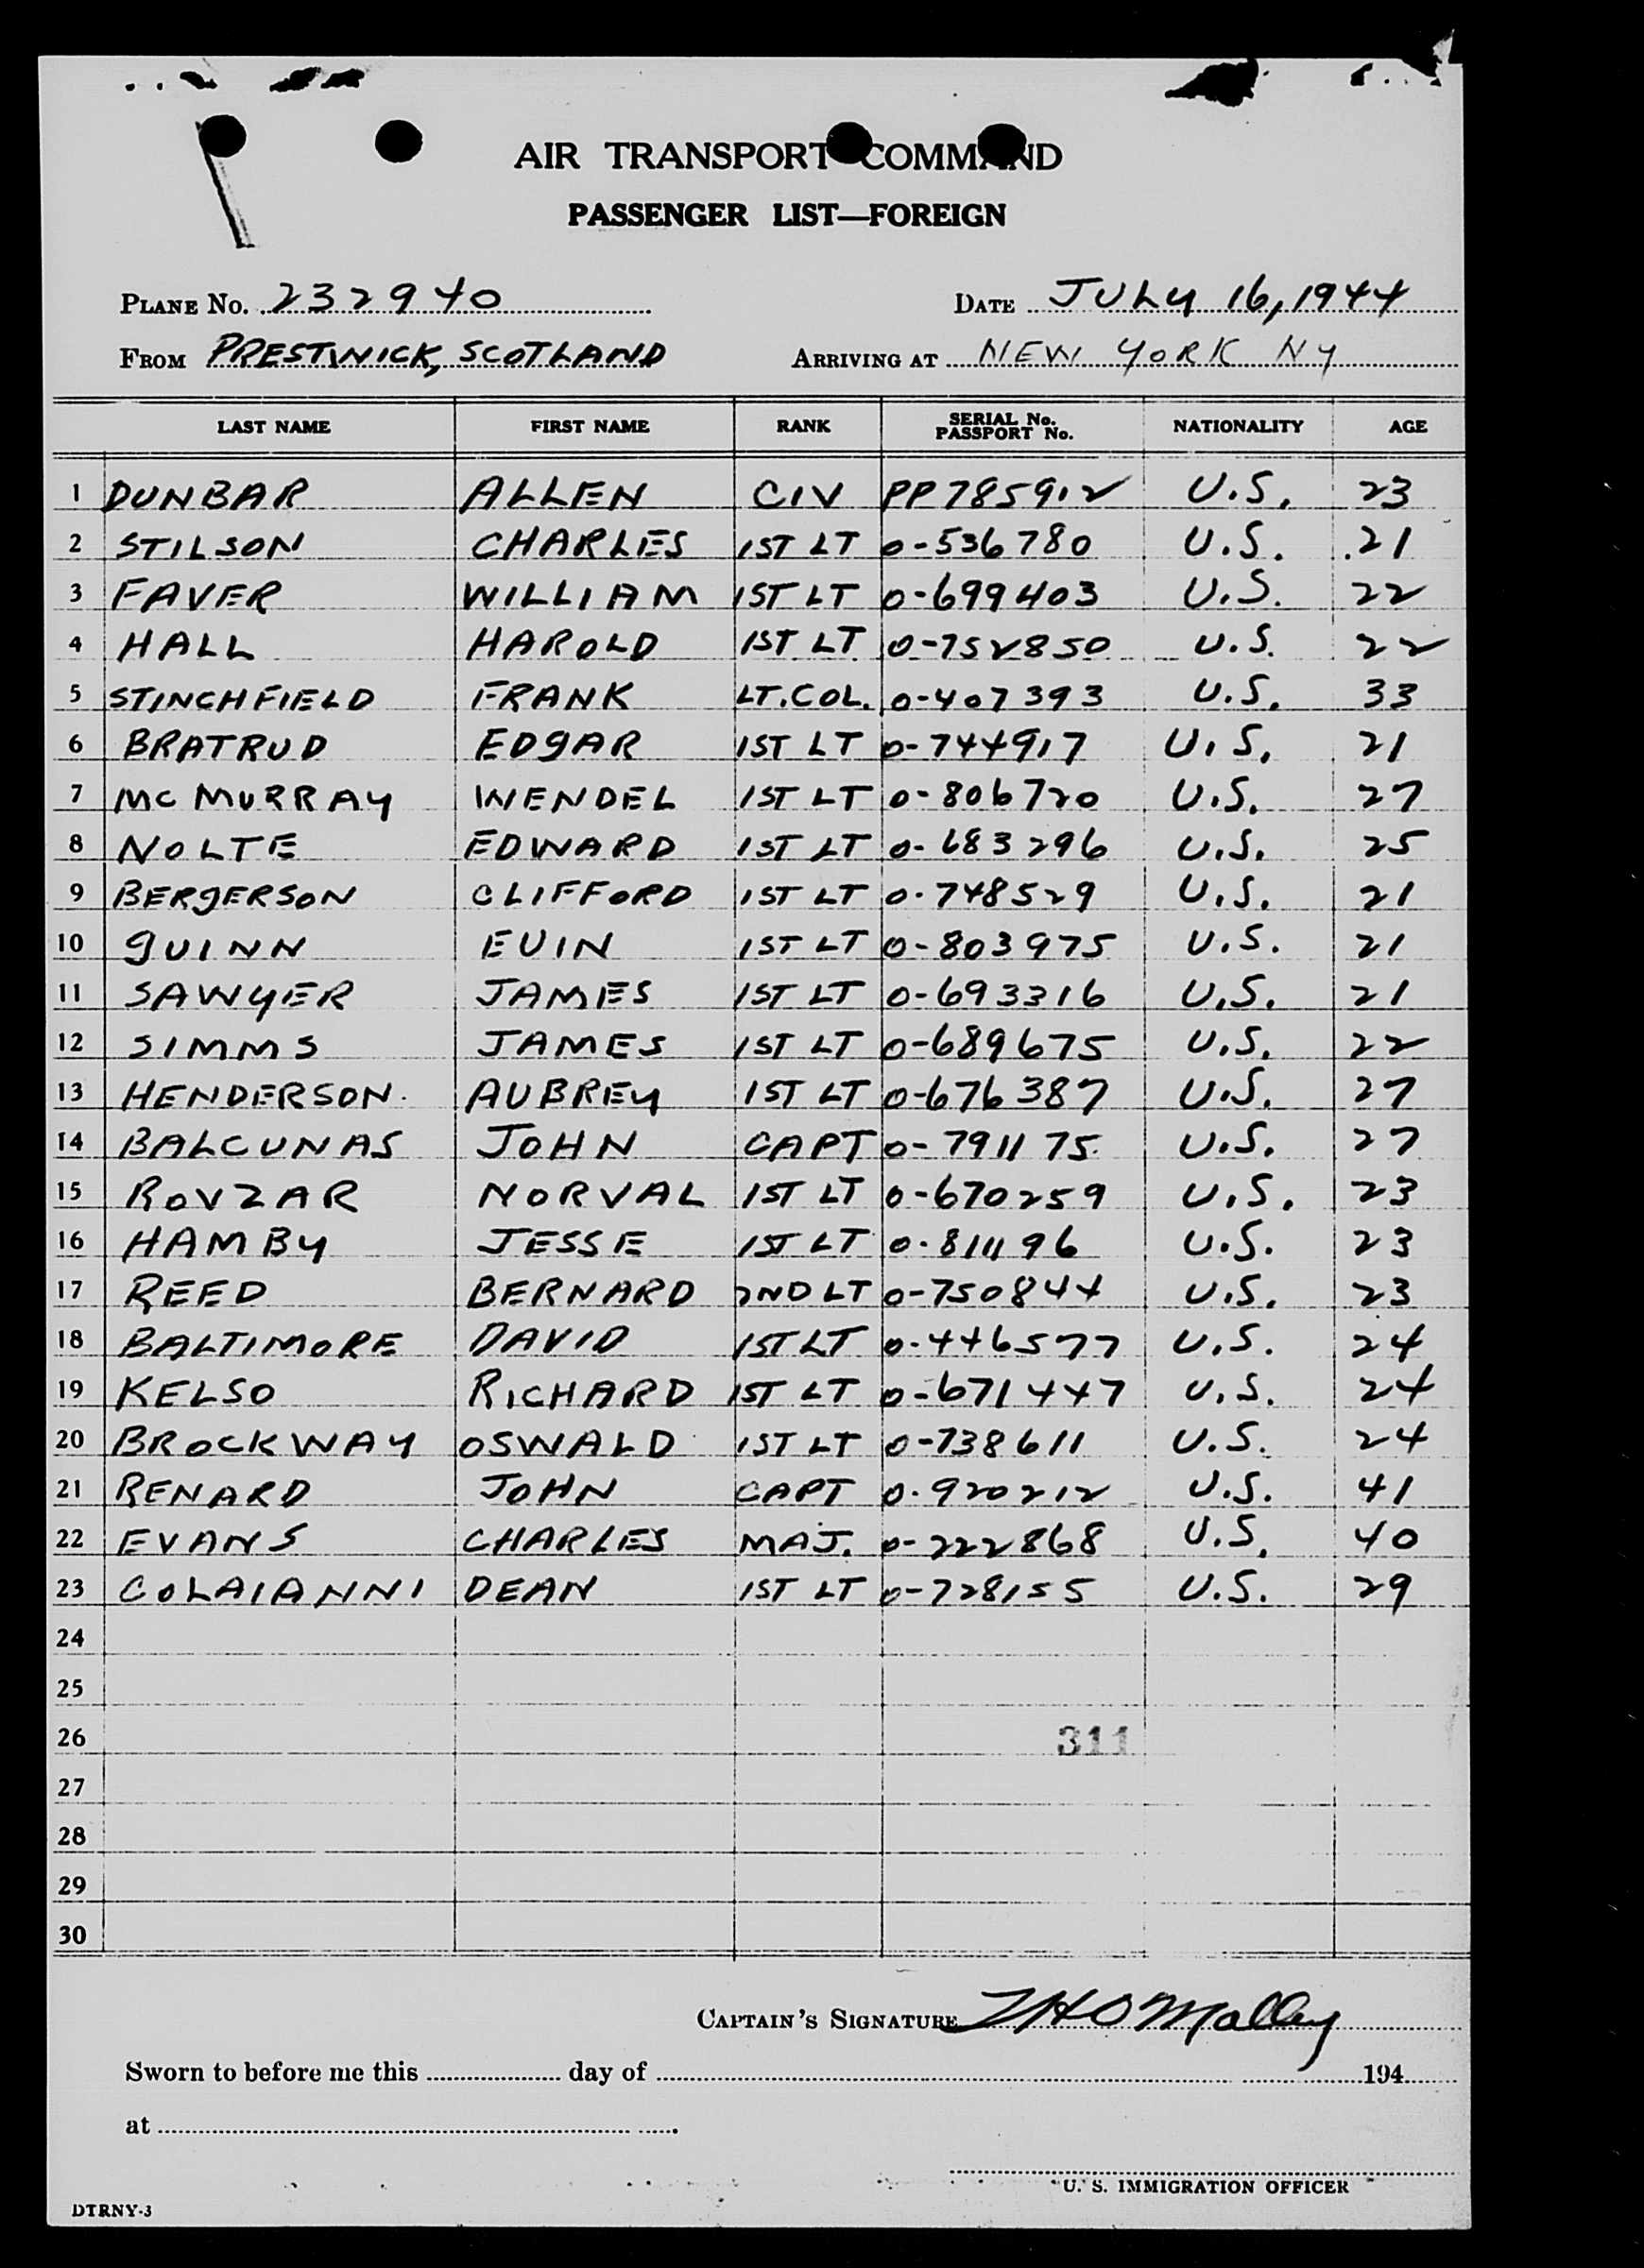 AIR TRANSPORT COMMAND
PASSENGER LIST—FOREIGN
PLANE No. 232940 DATE JULY 16, 1944
FROM PRESTWICK, SCOTLAND ARRIVING AT NEW YORK NY
LAST NAME FIRST NAME RANK SERIAL No. PASSPORT No. NATIONALITY AGE
1 DUNBAR ALLEN CIV PP785912 U.S. 23
2 STILSON CHARLES 1ST LT 0-536780 U.S. 21
3 FAVER WILLIAM 1ST LT 0-699403 U.S. 22
4 HALL HAROLD 1ST LT 0-752850 U.S. 22
5 STINCHFIELD FRANK LT.COL. 0-407393 U.S. 33
6 BRATRUD EDGAR 1ST LT 0-744917 U.S. 21
7 MCMURRAY WENDEL 1ST LT 0-806720 U.S. 27
8 NOLTE EDWARD 1ST LT 0-683296 U.S. 25
9 BERGERSON CLIFFORD 1ST LT 0-748529 U.S. 21
10 GUINN EUIN 1ST LT 0-803975 U.S. 21
11 SAWYER JAMES 1ST LT 0-693316 U.S. 21
12 SIMMS JAMES 1ST LT 0-689675 U.S. 22
13 HENDERSON AUBREY 1ST LT 0-676387 U.S. 27
14 BALCUNAS JOHN CAPT 0-791175 U.S. 27
15 ROVZAR NORVAL 1ST LT 0-670259 U.S. 23
16 HAMBY JESSE 1ST LT 0-811196 U.S. 23
17 REED BERNARD 2ND LT 0-750844 U.S. 23
18 BALTIMORE DAVID 1ST LT 0-446577 U.S. 24
19 KELSO RICHARD 1ST LT 0-671447 U.S. 24
20 BROCKWAY OSWALD 1ST LT 0-738611 U.S. 24
21 RENARD JOHN CAPT 0-920212 U.S. 41
22 EVANS CHARLES MAJ. 0-222868 U.S. 40
23 COLAIANNI DEAN 1ST LT 0-728155 U.S. 29
24
25
26 311
27
28
29
30
CAPTAIN'S SIGNATURE O'Malley
Sworn to before me this day of 194
at
U. S. IMMIGRATION OFFICER
DTRNY-3